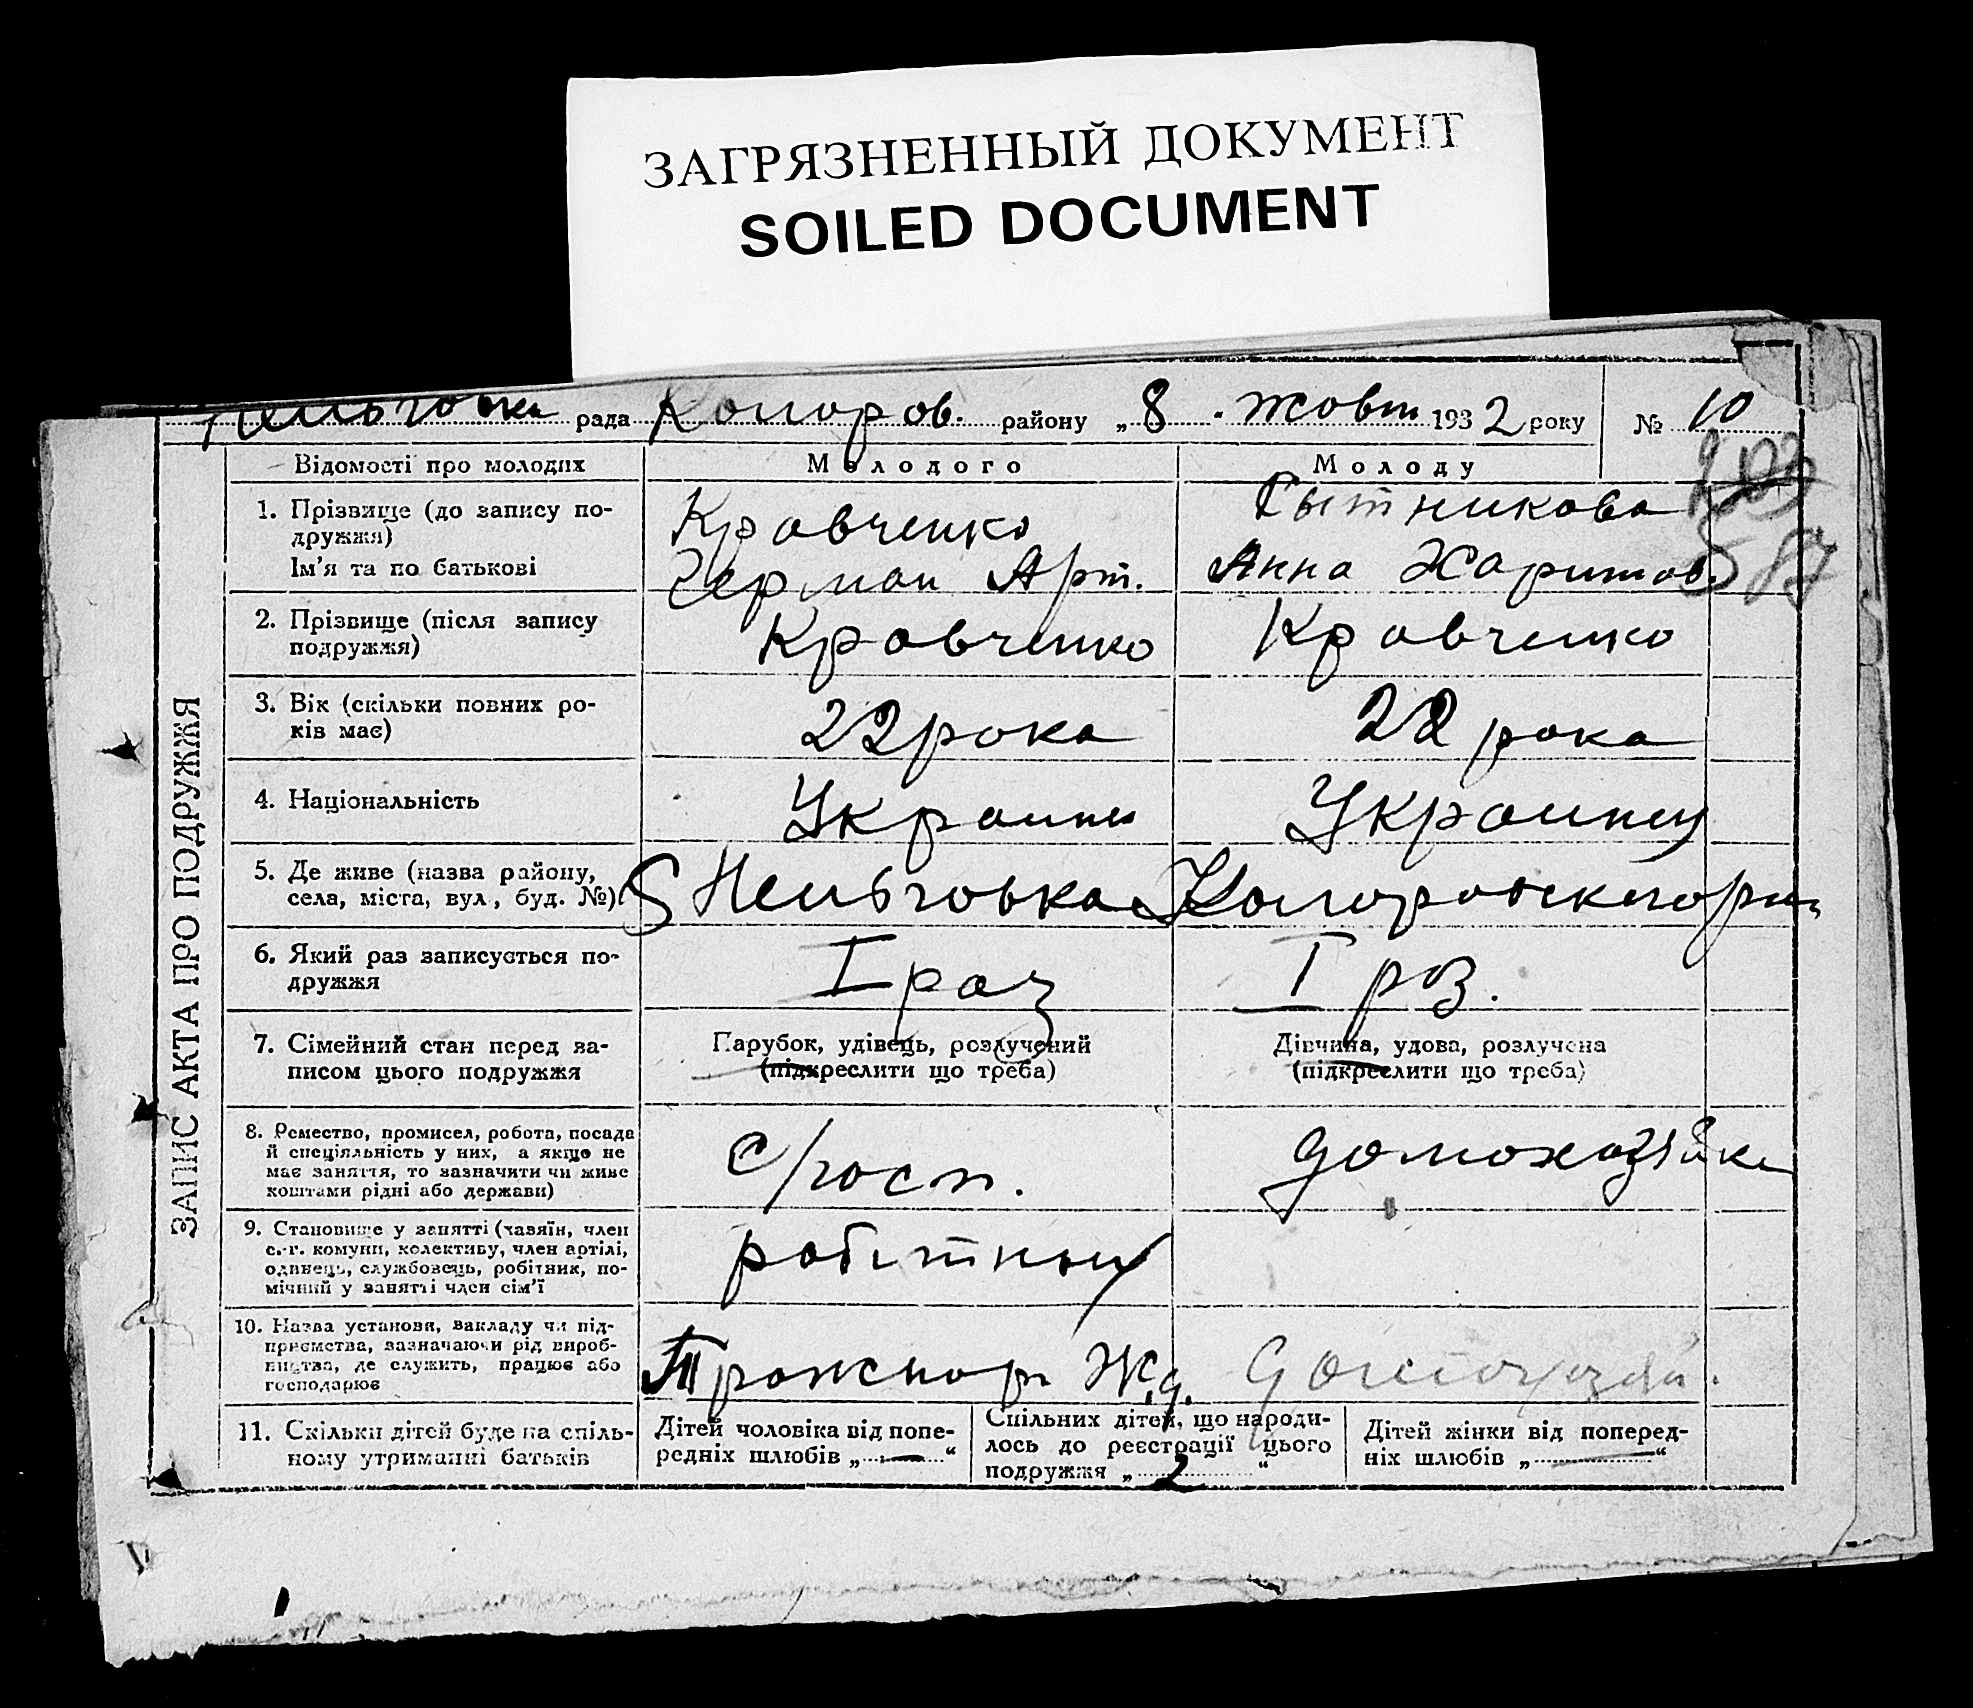 ЗАГРЯЗНЕННЫЙ ДОКУМЕНТ
SOILED DOCUMENT
рада Коморов. району „8 . жовт 1932 року № 10
Відомості про молодих Молодого Молоду
1. Прізвище (до запису по-
дружжя)
Ім'я та по батькові
Кравченко
Герман Арт.
Сытникова
Анна Харитов.
587
2. Прізвище (після запису
подружжя)
Кравченко Кравченко
3. Вік (скільки повних ро-
ків має)
22 рока 22 рока
4. Національність
5. Де живе (назва району,
села, міста, вул., буд. №)
6. Який раз записується по-
дружжя
I раз I рз.
7. Сімейний стан перед за-
писом цього подружжя
Парубок, удівець, розлучений
(підкреслити що треба)
Дівчина, удова, розлучена
(підкреслити що треба)
8. Ремество, промисел, робота, посада
й спеціяльність у них, а якщо не
має заняття, то зазначити чи живе
коштами рідні або держави)
с/госп. домохазяйка
9. Становище у занятті (хазяїн, член
с.-г. комуни, колективу, член артілі,
одинець, службовець, робітник, по-
мічний у занятті член сім'ї
10. Назва установи, закладу чи під-
приємства, зазначаючи рід вироб-
ництва, де служить, працює або
господарює
Ж.д.
11. Скільки дітей буде на спіль-
ному утриманні батьків
Дітей чоловіка від попе-
редніх шлюбів „—“
Спільних дітей, що народи-
лось до реєстрації цього
подружжя „2“
Дітей жінки від поперед-
ніх шлюбів „—“
ЗАПИС АКТА ПРО ПОДРУЖЖЯ